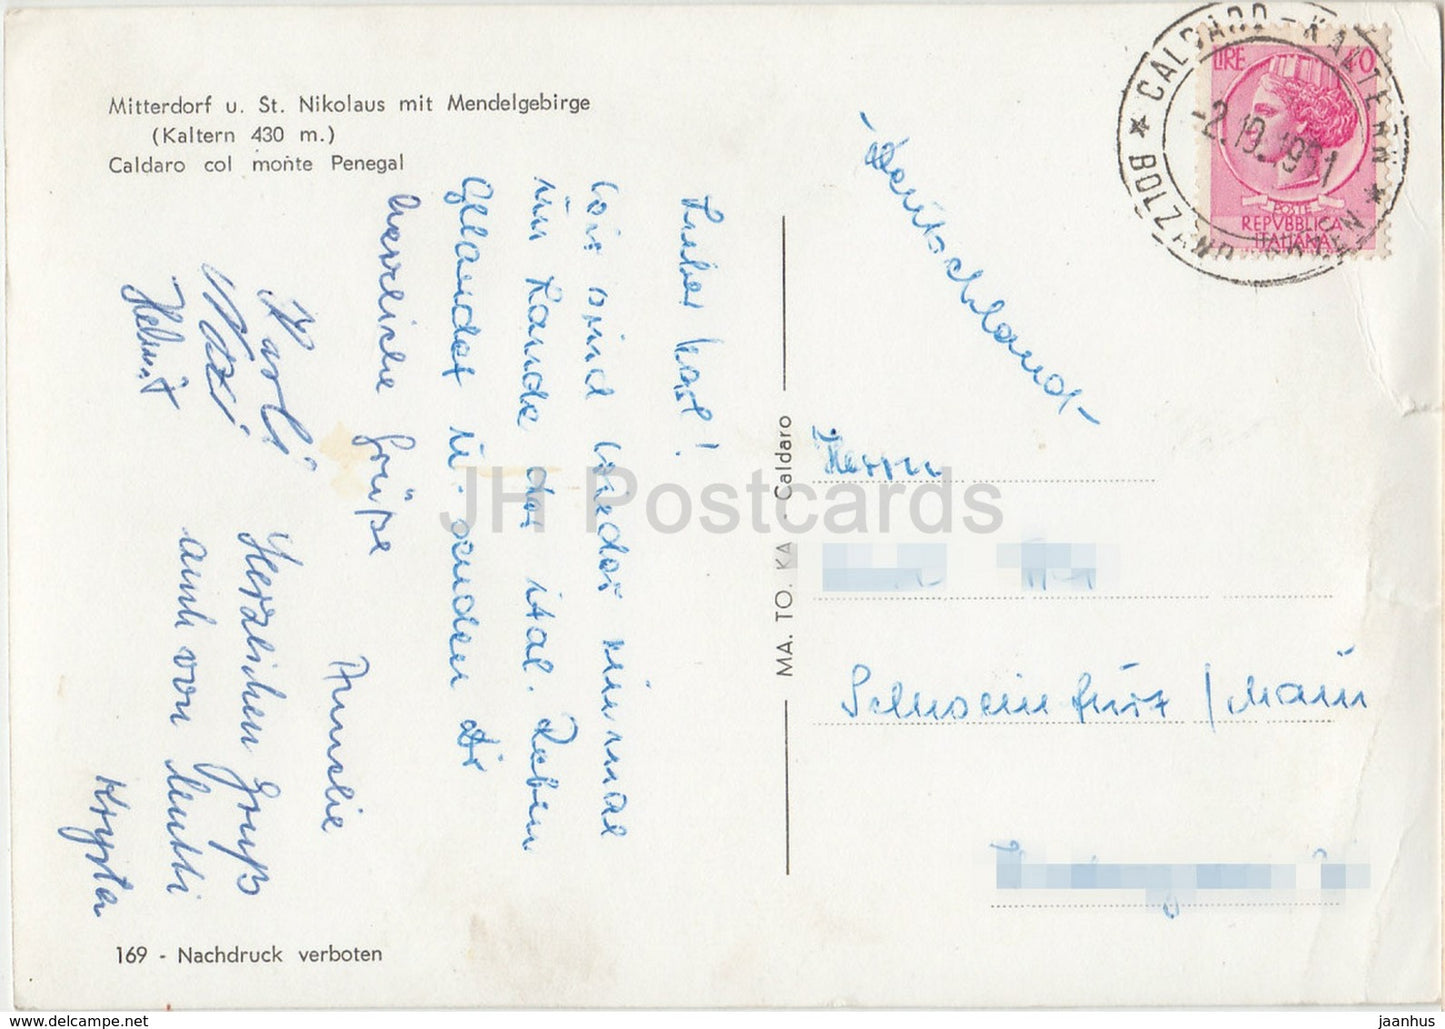 Mitterdorf u. St. Nikolaus mit Mendelgebirge
(Kaltern 430 m.)
Caldaro col monte Penegal
Lieber Karl!
Wir sind wieder einmal
im Lande der ital. Reben
u. senden Dir
herrliche Grüße
Annelie
Karli
Helmut
Herzlichen Gruß
auch von Mutti
Krysta
169 - Nachdruck verboten
MA. TO. KA. - Caldaro
CALDARO - KALTERN
* BOLZANO - BOZEN *
-2.10.1971
LIRE 40
POSTE
REPVBBLICA
ITALIANA
-Deutschland-
Herrn
Schweinfurt / Main
JH Postcards
www.delcampe.net
jaanhus